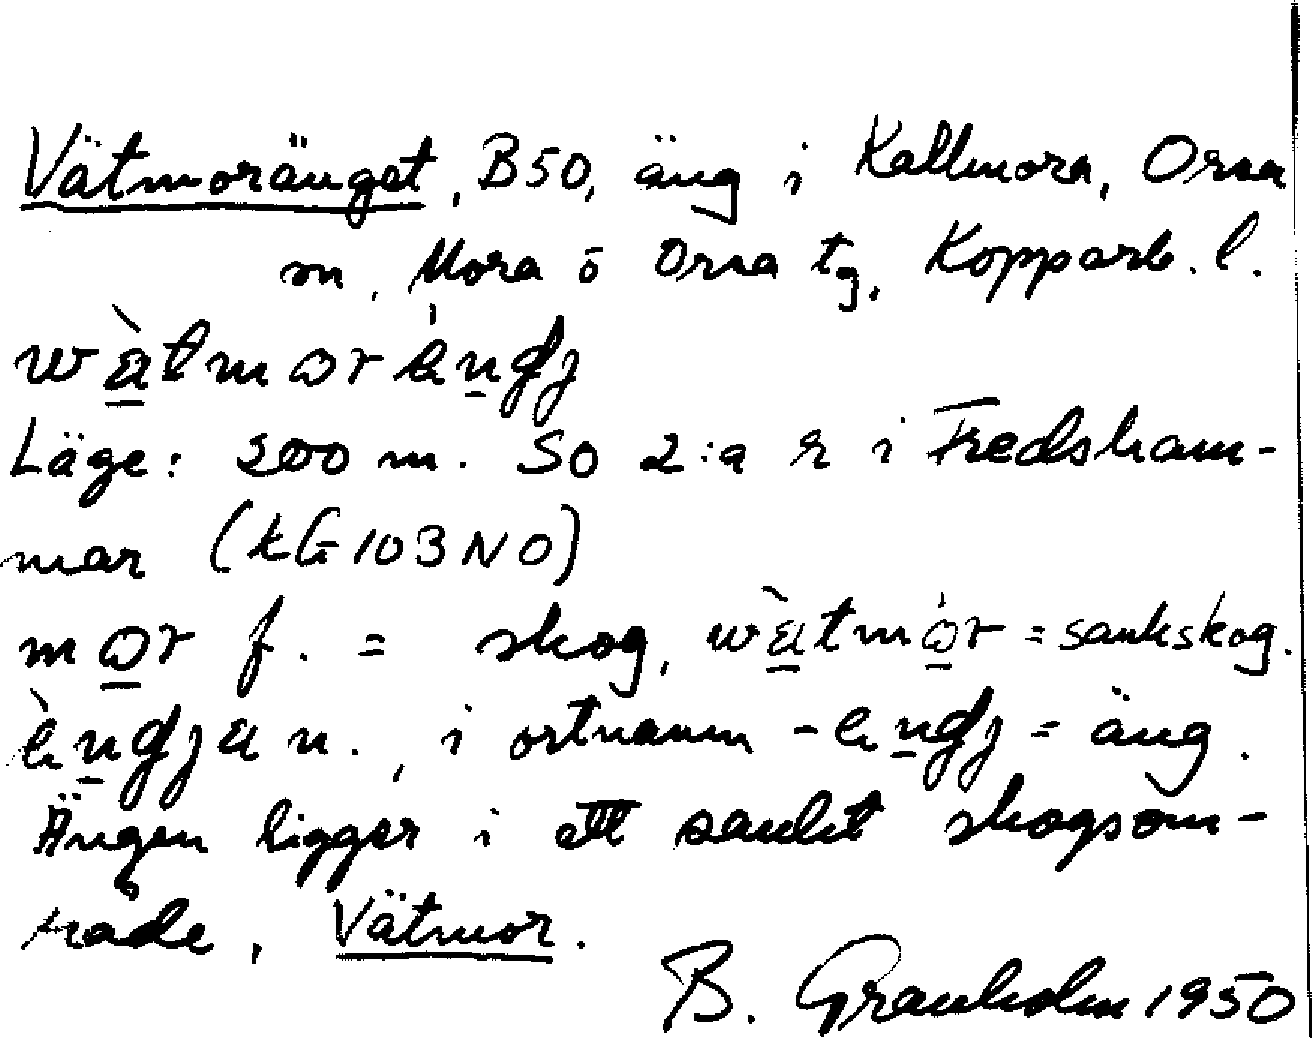 Vätmoränget, B50, äng i Kallmora, Orsa
sn, Mora o Orsa tg, Kopparb. l.
wàtmorèngj
Läge: 300 m. SO 2:a r i Fredsham-
mar (kG 103 NO)
mor f. = skog, wàtmór = sankskog.
èngja n., i ortnamn -engj = äng.
Ängen ligger i ett sankt skogsom-
råde, Vätmor.
B. Granholm 1950